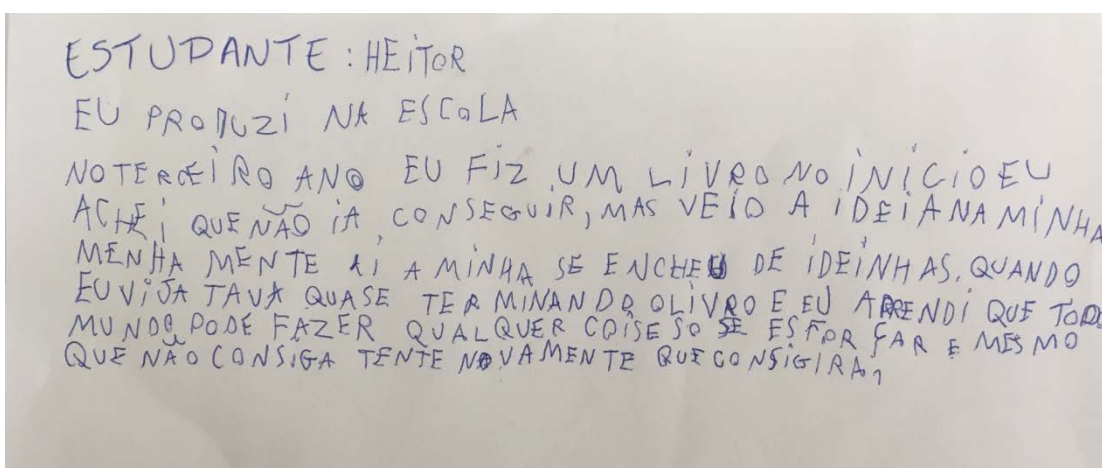 ESTUDANTE : HEITOR
EU PRODUZI NA ESCOLA
NO TERCEIRO ANO EU FIZ UM LIVRO NO INÍCIO EU
ACHEI QUE NÃO IA CONSEGUIR, MAS VEIO A IDEIA NA MINHA
MENHA MENTE AI A MINHA SE ENCHEU DE IDEINHAS. QUANDO
EU VI JA TAVA QUASE TERMINANDO O LIVRO E EU APRENDI QUE TODO
MUNDO PODE FAZER QUALQUER COISE SO SE ESFORÇAR E MESMO
QUE NÃO CONSIGA TENTE NOVAMENTE QUE CONSIGIRA,